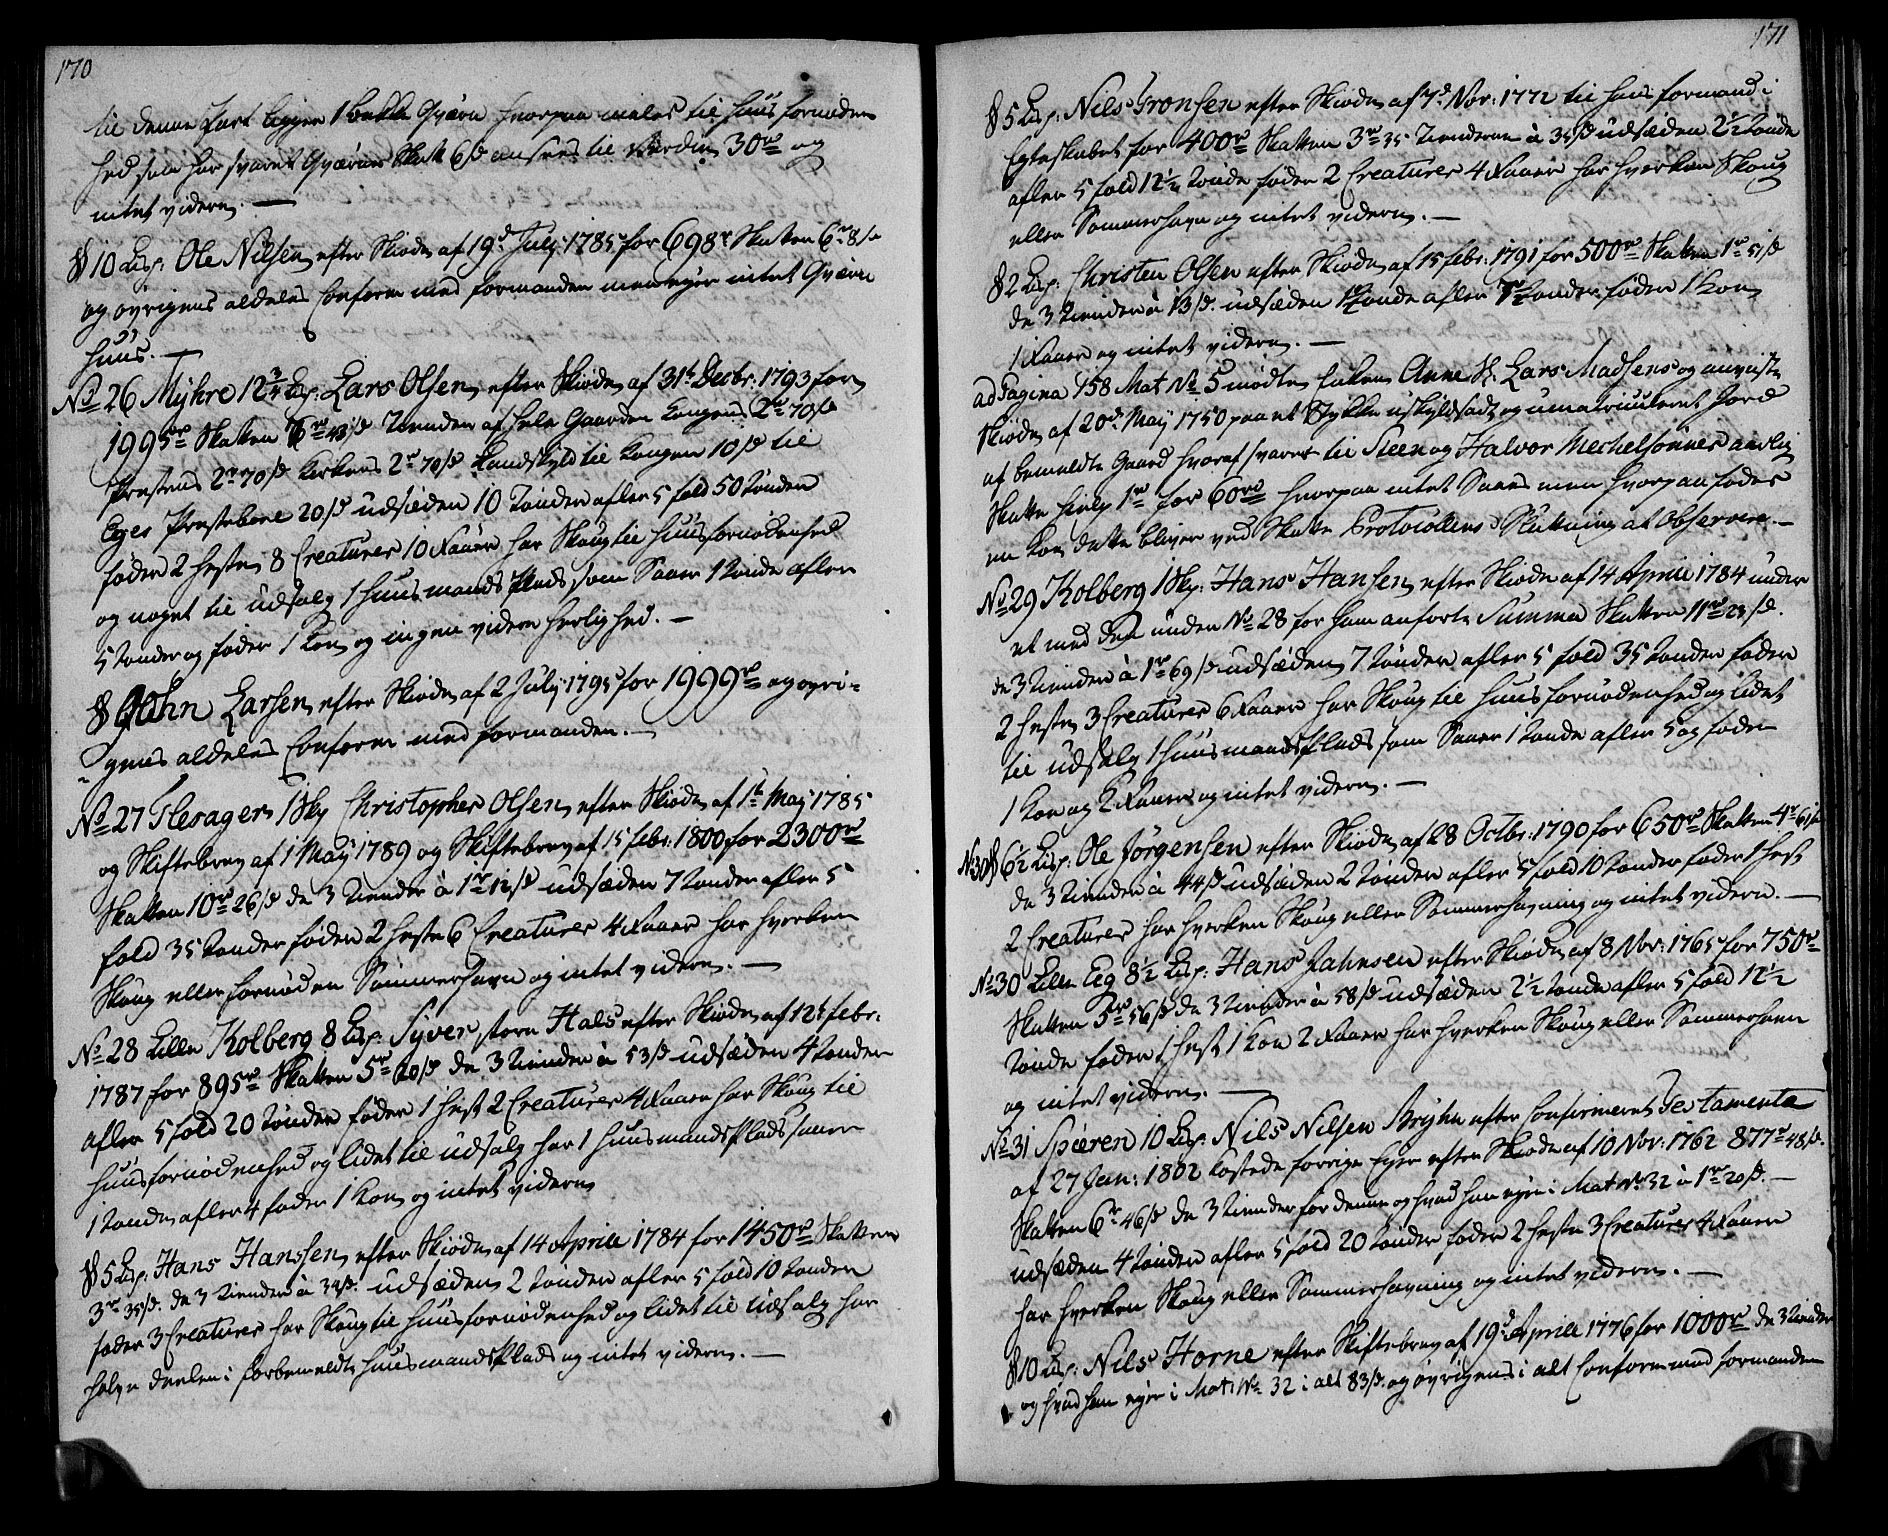 170
til denne Part ligger 1 bekke Qværn hvorpaa males til huus fornøden
hed som har svaret Qværne Skatt 6 s ansees til Værdie 30 rd og
intet videre. —
§ 10 Lisp: Ole Nilsen efter Skiøde af 19d July 1785 for 698 r Skatten 6 r 8 s
og øvrigens aldeles Conform med formanden men ejer intet Qværn
huus. —
No 26 Myhre 12 3/4 Lisp: Lars Olsen efter Skiøde af 31t Decbr: 1793 for
1995 rd Skatten 6 rd 43 s Tienden af hele Gaarden Kongens 2 rd 70 s
Præstens 2 r 70 s Kirkens 2 rd 70 s Landskyld til Kongen 10 s til
Eger Præsteboel 20 s udsæden 10 Tønder afler 5 fold 50 Tønder
føder 2 heste 8 Creaturer 10 Faaer har Skoug til huusfornødenhed
og noget til udsalg 1 huusmands Plads som Saaer 1 Tønde afler
5 Tønder og føder 1 Koe og ingen videre herlighed. —
§ John Larsen efter Skiøde af 2 July 1795 for 1999 rd og øvri-
gens aldeles Conform med formanden. —
No 27 Flesager 1 Skp Christopher Olsen efter Skiøde af 1t May 1785
og Skiftebrev af 1 May 1789 og Skiftebrev af 15 febr: 1800 for 2300 rd
Skatten 10 rd 26 s de 3 Tiender à 1 rd 12 s udsæden 7 Tønder afler 5
fold 35 Tønder føder 2 heste 6 Creaturer 4 Faaer har hverken
Skoug eller fornøden Sommerhavn og intet videre. —
No 28 Lille Kolberg 8 Lisp: Syver store Hals efter Skiøde af 12t febr:
1787 for 895 rd Skatten 5 rd 20 s de 3 Tiender à 53 s udsæden 4 Tønder
afler 5 fold 20 Tønder føder 1 hest 2 Creaturer 4 Faaer har Skoug til
huusfornødenhed og lidet til udsalg har 1 huusmands Plads saaer
1 Tønde afler 4 føder 1 Koe og intet videre
§ 5 Lisp: Hans Hanssen efter Skiøde af 14 Aprill 1784 for 1450 rd Skatten
3 rd 35 s. de 3 Tiender à 34 s. udsæden 2 Tønder afler 5 fold 10 Tønder
føder 3 Creaturer har Skoug til huusfornødenhed og lidet til udsalg har
halve deelen i forbemeldte huusmands Plads og intet videre. —
171
§ 5 Lisp: Nils Gronsen efter Skiøde af 7d Nov: 1772 til hans formand i
Egteskabet for 400 rd Skatten 3 rd 35 Tienderne à 35 s udsæden 2 1/2 Tønde
afler 5 fold 12 1/2 Tønde føder 2 Creaturer 4 Faaer har hverken Skoug
eller Sommerhavn og intet videre. —
§ 2 Lisp: Christen Olsen efter Skiøde af 15 febr: 1791 for 500 rd Skatten 1 rd 51 s
de 3 Tiender à 13 s. udsæden Tønde afler Tønder føder 1 Koe
1 Faaer og intet videre. —
ad Pagina 158 Mat No 5 mødte Enken Anne Sl. Lars Madsens og anviiste
Skiøde af 20d May 1750 paa et Stykke uskyldsadt og umatriculeret Jord
af bemeldte Gaard hvoraf svares til Steen og Halvor Mechelsønner aarlig
Skatte hielp 1 rd for 60 rd hvorpaa intet Saaes men hvorpaa fødes
en Koe dette bliver ved Skatte Protocollens Sluttning at Observere. —
No 29 Kolberg 1 Skp: Hans Hansen efter Skiøde af 14 Aprill 1784 under
et med den under No 28 for ham anførte Summa Skatten 11 rd 23 s.
de 3 Tiender à 1 rd 69 s udsæden 7 Tønder afler 5 fold 35 Tønder føder
2 heste 3 Creaturer 6 Faaer har Skoug til huusfornødenhed og lidet
til udsalg 1 huusmands Plads som Saaer 1 Tønde afler 5 og føder
1 Koe og 2 Faaer og intet videre. —
No 30 § 6 1/2 Lisp: Ole Jørgensen efter Skiøde af 28 Octbr: 1790 for 650 rd Skatten 4 rd 61 s
de 3 Tiender à 44 s udsæden 2 Tønder afler 5 fold 10 Tønder føder 1 hest
2 Creaturer har hverken Skoug eller Sommerhavning og intet videre. —
No 30 Lille Eeg 8 1/2 Lisp: Hans Jahnsen efter Skiøde af 8 Nov: 1765 for 750 rd
Skatten 5 rd 56 s de 3 Tiender à 58 s udsæden 2 1/2 Tønde afler 5 fold 12 1/2
Tønde føder 1 hest 1 Koe 2 Faaer har hverken Skoug eller Sommerhavn
og intet videre. —
No 31 Speeren 10 Lisp: Nils Nilsen Bryhn efter Confirmeret Testamente
af 27 Jan: 1802 kostede forrige Ejer efter Skiøde af 10 Nov: 1762 877 rd 48 s.
Skatten 6 r 46 s de 3 Tiender for denne og hvad han ejer i Mat No 32 à 1 rd 20 s. —
udsæden 4 Tønder afler 5 fold 20 Tønder føder 2 heste 3 Creaturer 4 Faaer
har hverken Skoug eller Sommerhavning og intet videre. —
§ 10 Lisp: Nils Horne efter Skiftebrev af 19d Aprill 1776 for 1000 rd de 3 Tiender
og hvad han ejer i Mat: No 32 i alt 83 s. og øvrigens i alt Conform med formanden